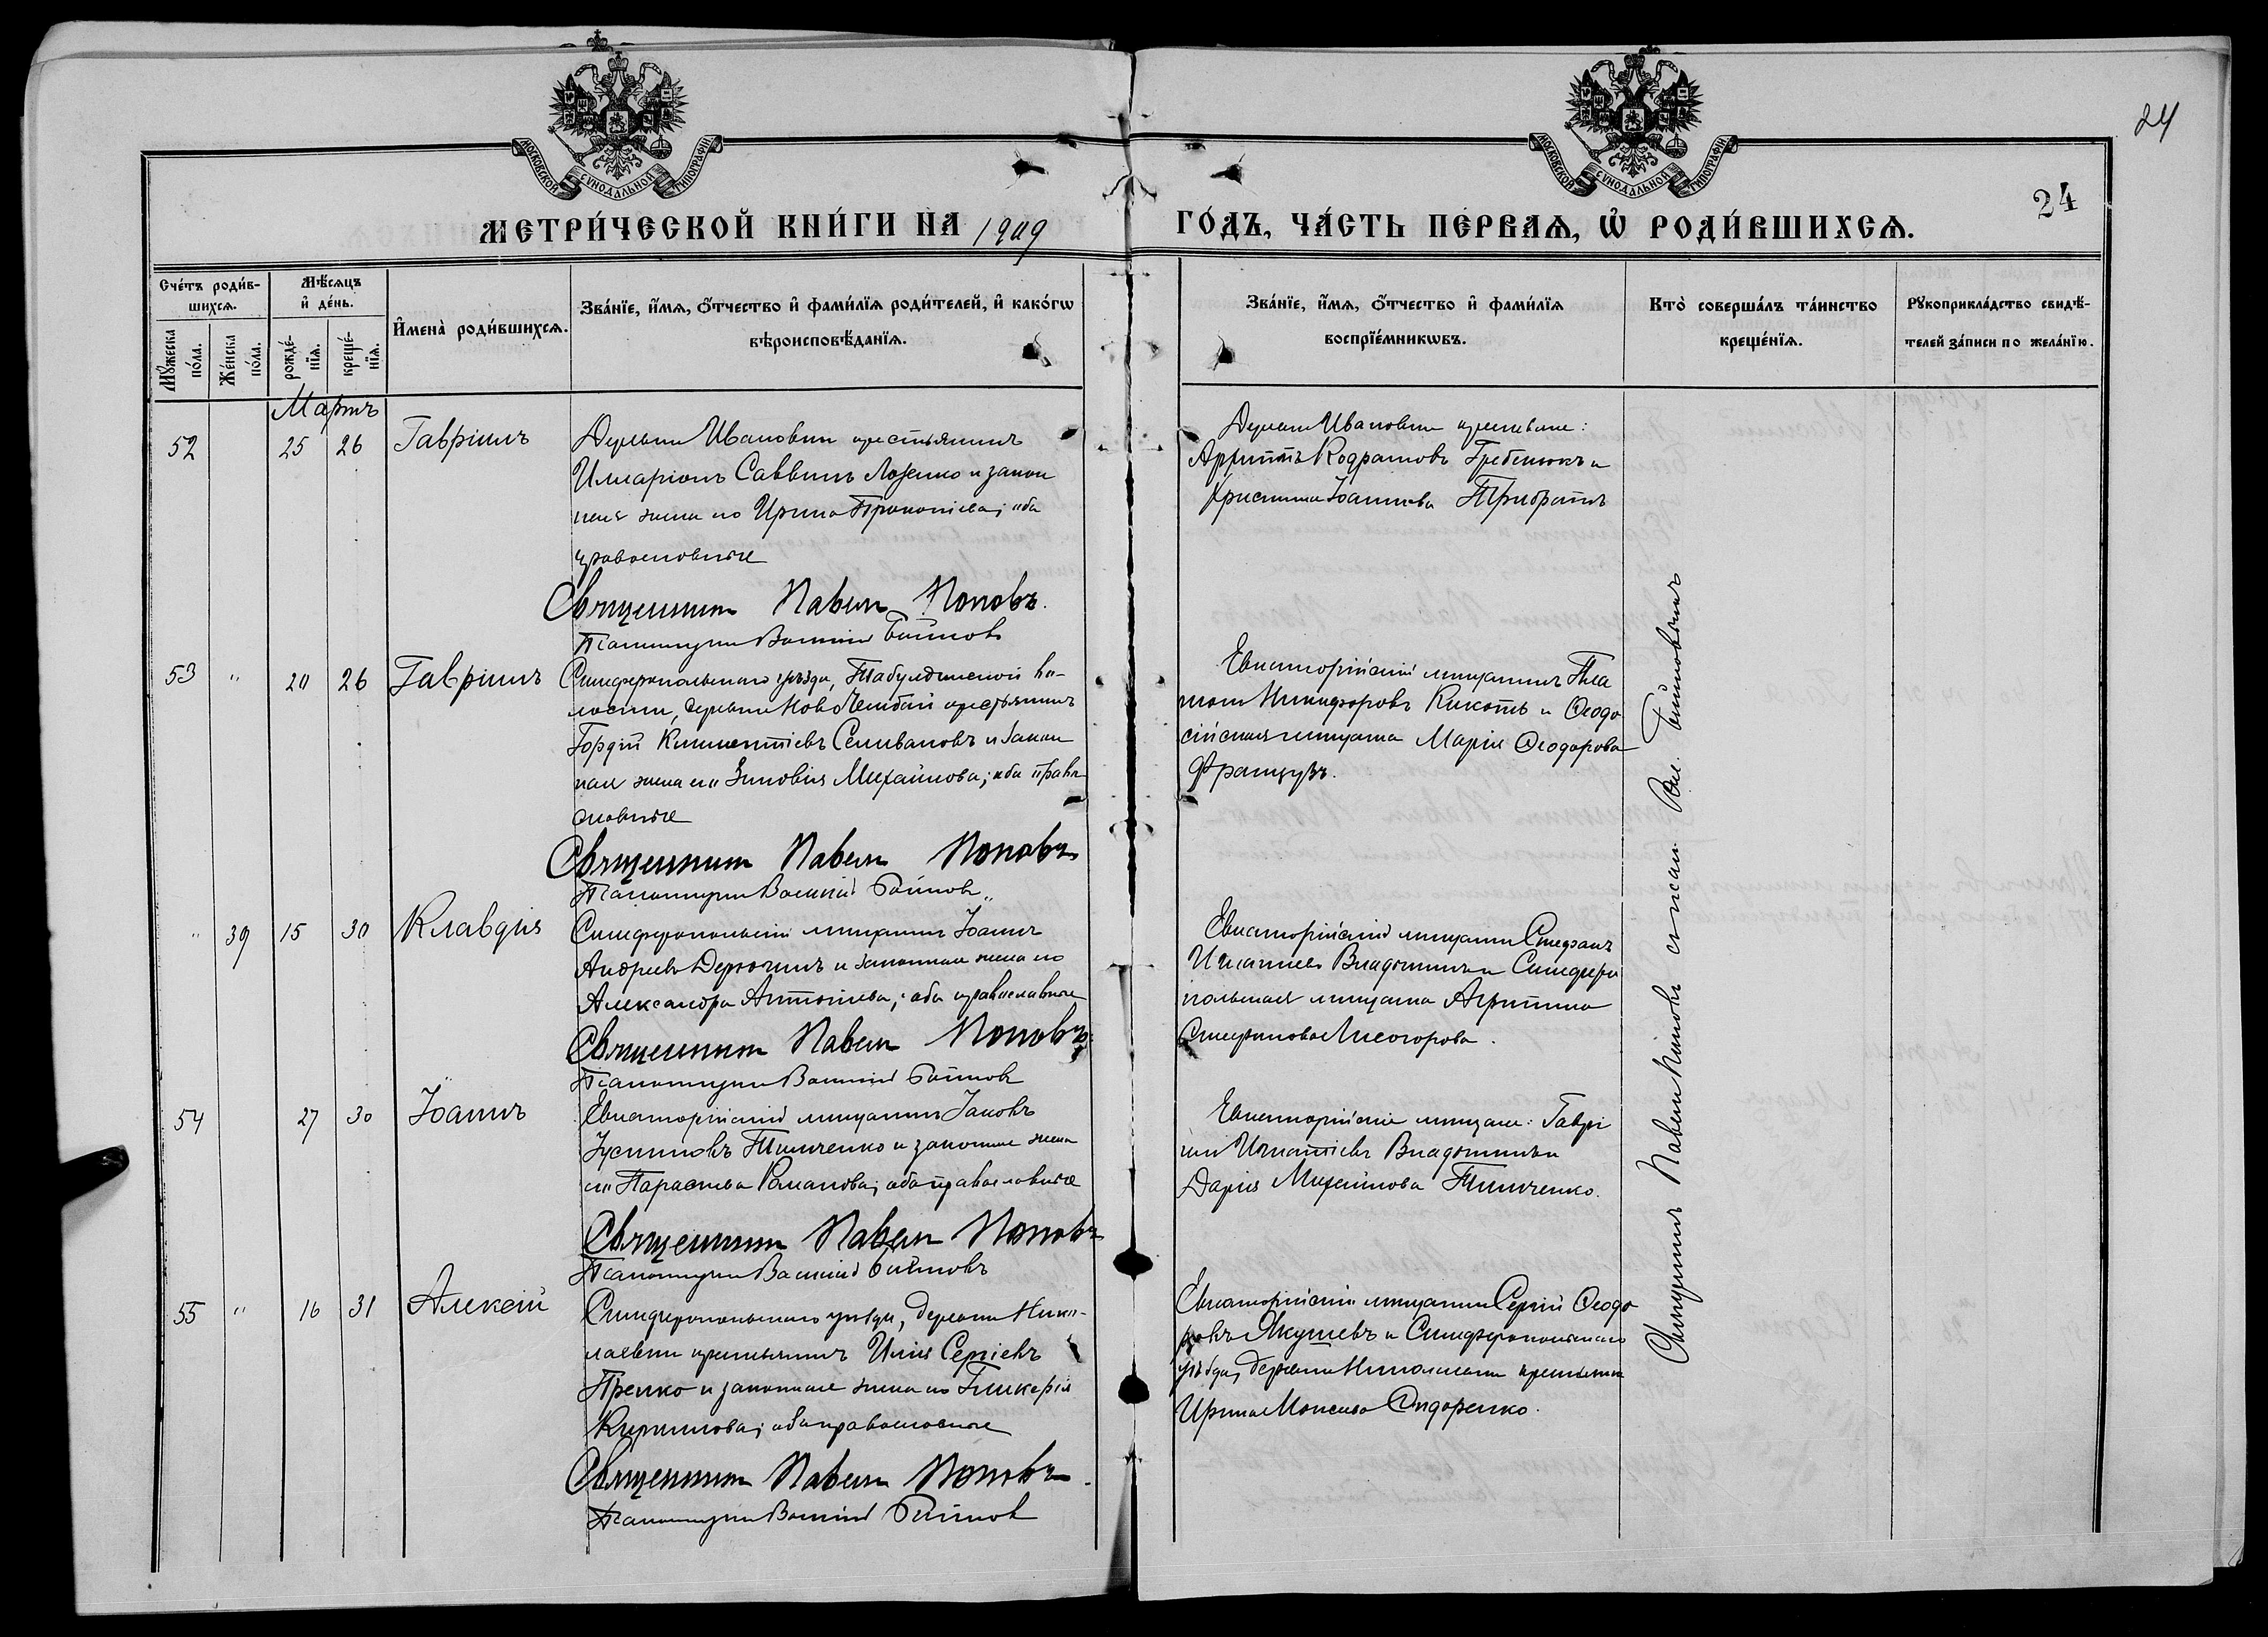 24
МОСКОВСКОЙ СѴНОДАЛЬНОЙ ТИПОГРАФІИ
МОСКОВСКОЙ СѴНОДАЛЬНОЙ ТИПОГРАФІИ
24
МЕТРИ́ЧЕСКОЙ КНИ́ГИ НА 1909
ГО́ДЪ, ЧА́СТЬ ПЕ́РВАѦ, Ѡ҆ РОДИ́ВШИХСѦ.
Сче́тъ роди́в-
шихсѧ.
Мꙋ́жеска по́ла.
Же́нска по́ла.
Мѣ́сѧцъ
и҆ де́нь.
рожде́-
нїѧ.
креще́-
нїѧ.
И҆мена̀ роди́вшихсѧ.
Зва́нїе, и҆́мѧ, ѻ҆́тчество и҆ фами́лїѧ роди́телей, и҆ како́гѡ
вѣроисповѣ́данїѧ.
Зва́нїе, и҆́мѧ, ѻ҆́тчество и҆ фами́лїѧ
воспрїе́мникѡвъ.
Кто̀ соверша́лъ та́инство
креще́нїѧ.
Рꙋкоприкла́дство свидѣ́-
телей за́писи по жела́нїю.
Мартъ
52 25 26 Гавріилъ
Деревни Ивановки крестьянинъ
Илларіонъ Саввинъ Лозенко и закон
ная жена его Ирина Прокопіева; оба
православные
Священникъ Павелъ Поповъ.
Псаломщикъ Василій Бойковъ
Деревни Ивановки крестьяне:
Кодратовъ Гребенюкъ и
Христина Іоаннова
53 " 20 26 Гавріилъ
Симферопольскаго уѣзда, Табулдинской во-
лости, деревни Ново Чембай крестьянинъ
Гордій Климентіевъ Селивановъ и закон
ная жена его Зиновія Михайлова; оба право
славные
Священникъ Павелъ Поповъ
Псаломщикъ Василій Бойковъ
Евпаторійскій мѣщанинъ Пла
тонъ Никифоровъ Кикоть и Ѳеодо
сійская мѣщанка Марія Ѳеодорова
Французъ.
" 39 15 30 Клавдія
Симферопольскій мѣщанинъ Іоаннъ
Андреевъ Дерюгинъ и законная жена его
Александра Антоніева; оба православные
Священникъ Павелъ Поповъ
Псаломщикъ Василій Бойковъ
Евпаторійскій мѣщанинъ Стефанъ
Игнатіевъ и Симферо
польская мѣщанка Агриппина
Лисогорова.
54 27 30 Іоаннъ
Евпаторійскій мѣщанинъ Іаковъ
Іустиновъ Тимченко и законная жена
его Параскева Романова; оба православные
Священникъ Павелъ Поповъ
Псаломщикъ Василій Бойковъ
Евпаторійскіе мѣщане: Гаврі
илъ Игнатіевъ и
Дарія Михайлова Тимченко.
55 " 16 31 Алексій
Симферопольскаго уѣзда, деревни Нико-
лаевки крестьянинъ Илія Сергіевъ
и законная жена его Гликерія
Кириллова; оба православные
Священникъ Павелъ Поповъ
Псаломщикъ Василій Бойковъ
Евпаторійскій мѣщанинъ Сергій Ѳеодо
ровъ Якушевъ и Симферопольскаго
уѣзда, деревни Николаевки крестьянка
Ирина Моисеева Сидоренко.
Священникъ Павелъ Поповъ съ псалом. Вас. Бойковымъ